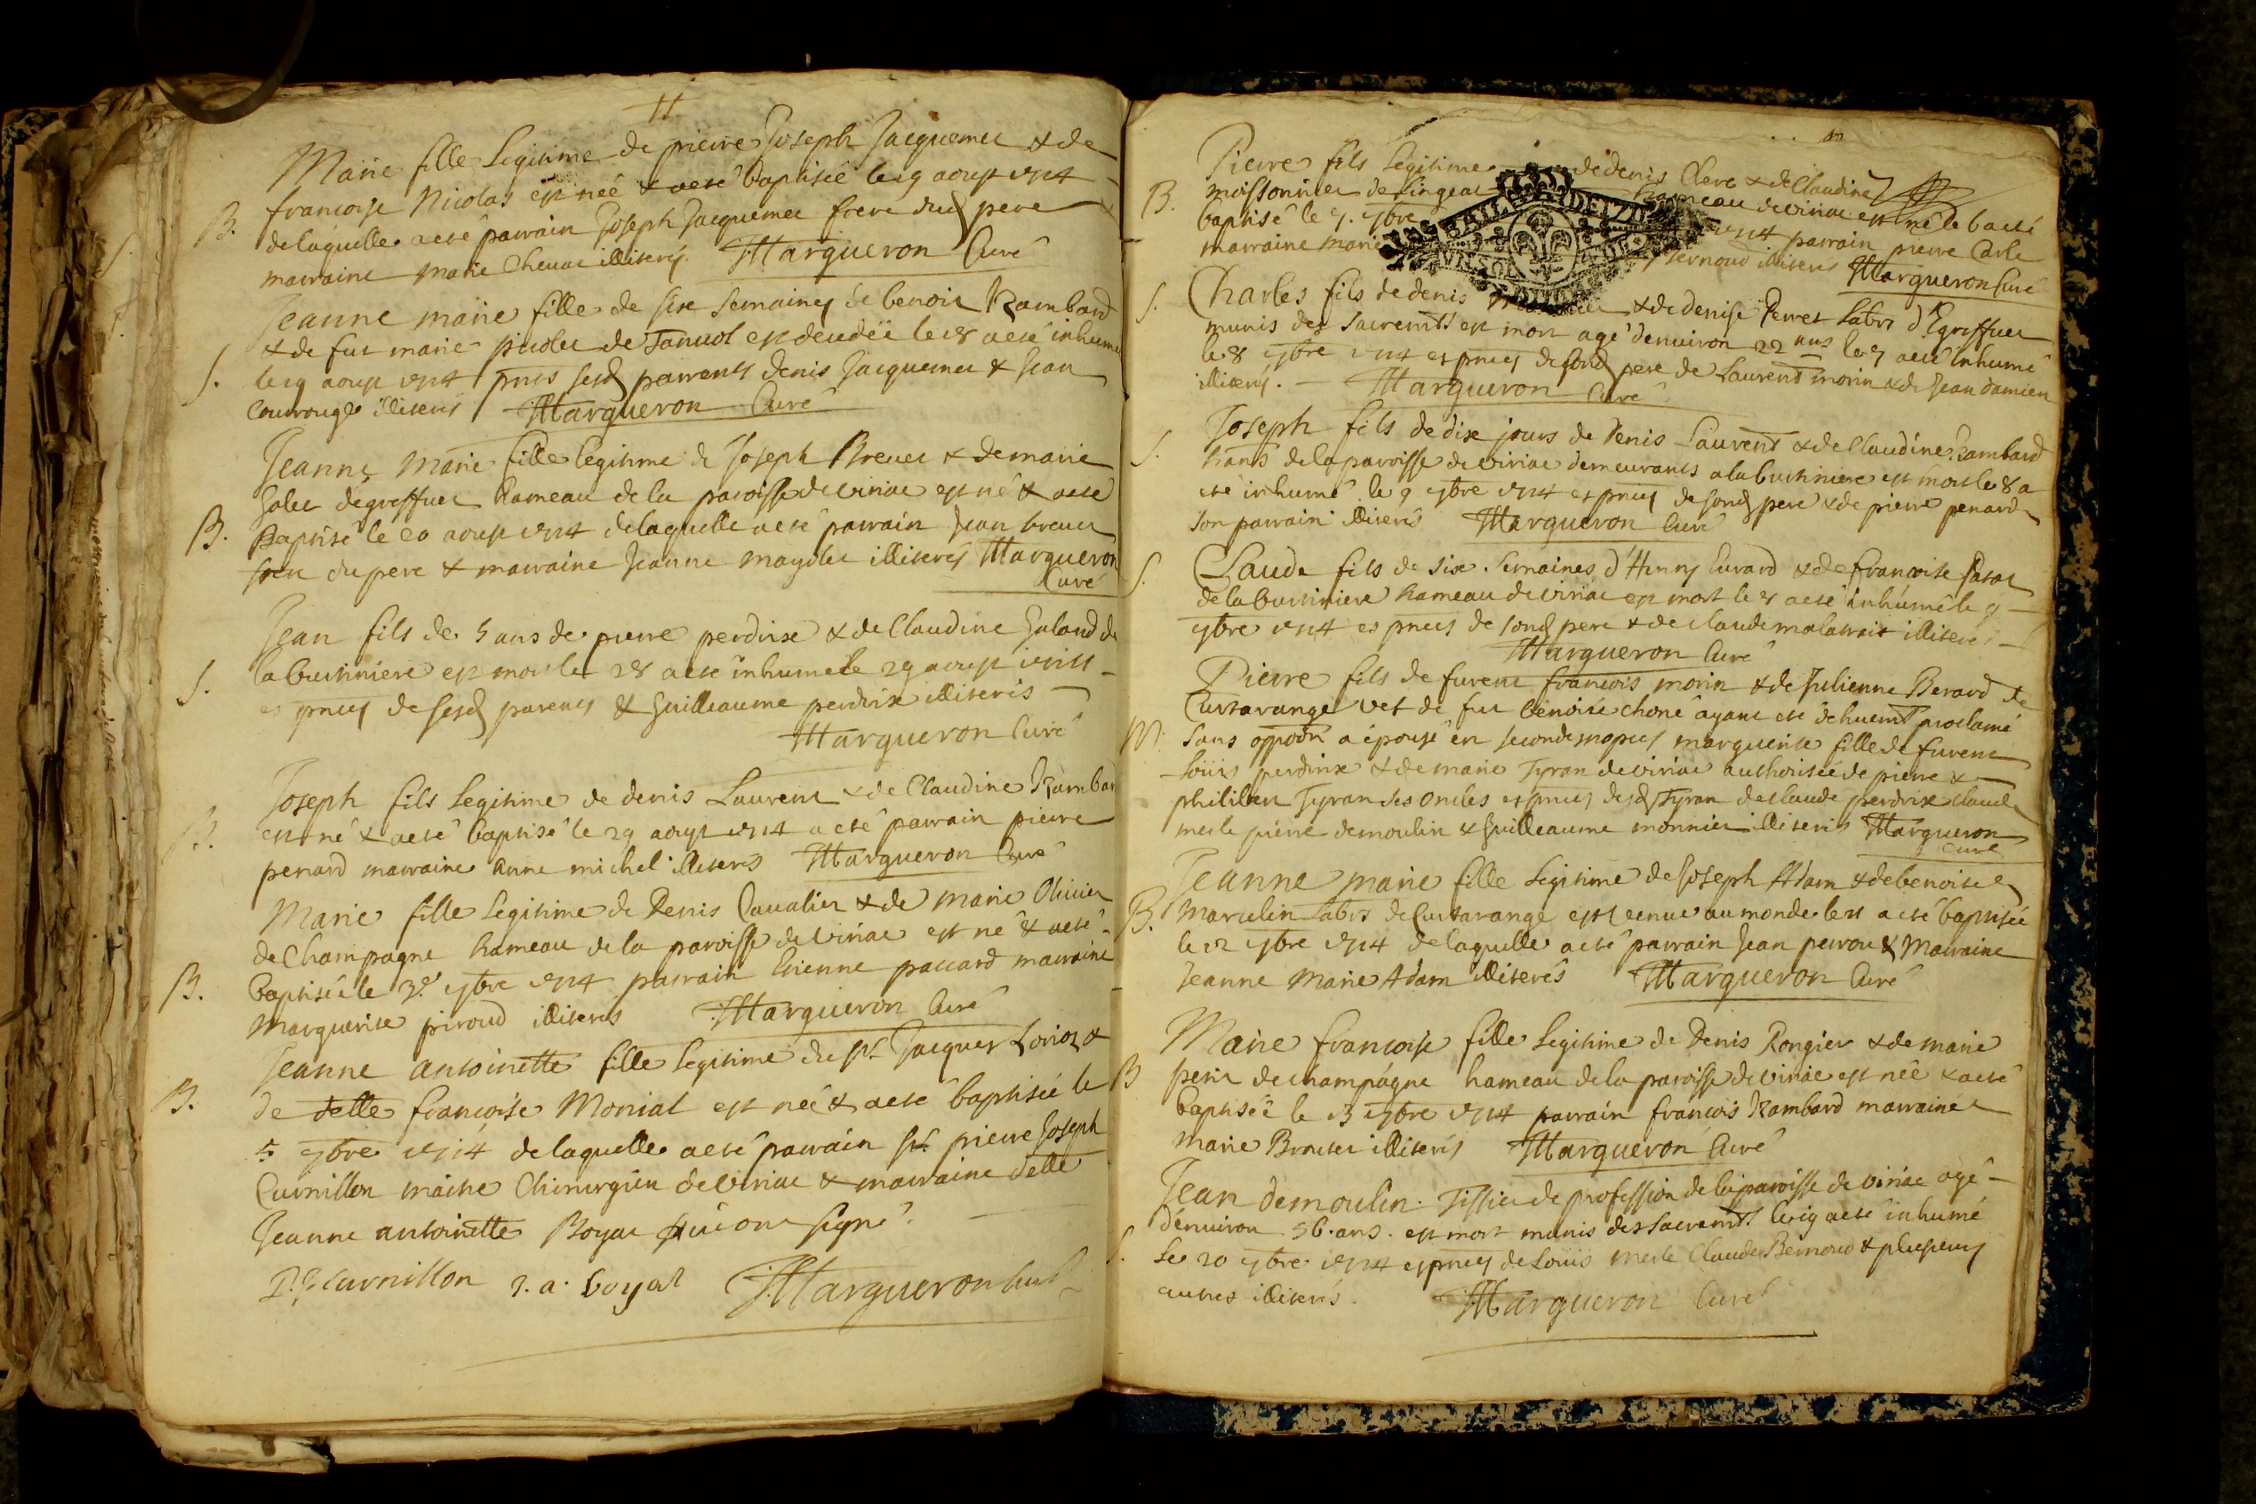 11
Marie fille legitime de pierre Joseph Jacquemet & de
francoise Nicolas est neé & a esté baptisée le 19 aoust 1714
B. de laquelle a esté parrain Joseph Jacquemet frere dud pere
marraine marie Chevat illiteres. Margueron Curé
Jeanne marie fille de six semaines de benoit Rambard
& de fut marie de est le 18 a esté inhumé
S. le 19 aoust 1714 pnts sesd parrents denis Jacquemet & Jean
illiteres Margueron Curé
Jeanne Marie fille legitime de Joseph Brevet & de marie
hameau de la paroisse de viriat est né & a esté
B. Baptisé le 20 aoust 1714 de laquelle a esté parrain Jean brevet
frere du pere & marraine Jeanne illiteres Margueron
Curé
Jean fils de 5 ans de pierre perdrix & de Claudine Galand de
la buirinniere est mort le 28 a esté inhumé le 29 aoust
S. es pnces de sesd parents & Guilleaume perdrix illiteres
Margueron Curé
Joseph fils legitime de denis Laurent & de Claudine Rambard
B. est né & a esté baptisé le 29 aoust 1714 a esté parrain pierre
penard marraine Anne michel illiteres Margueron Curé
Marie fille legitime de Denis Cavalier & de marie Olivier
de Champagne hameau de la paroisse de viriat est né & a esté
B. baptisée le 3e 7bre 1714 parrain Etienne paccard marraine
Marguerite piroud illiteres Margueron Curé
Jeanne antoinette fille legitime du Sr Jacques Loriol &
B. de delle francoise Monial est neé & a esté baptisée le
5 7bre 1714 de laquelle a esté parrain Sr pierre Joseph
Curnillon maitre Chirurgien de viriat & marraine delle
Jeanne antoinette Boyat qui ont signé.
P. J. Curnillon J. a. boyat Margueron Curé
Pierre fils legitime de denis Clerc & de Claudine
B. moissonnier de hameau de viriat est né le 6 a esté
baptisé le 7. 7bre 1714 parrain pierre Carle
marraine marie bernoud illiteres Margueron Curé
S. Charles fils de denis & de denise Perret labrs d'Egreffiet
munis des sacremts est mort agé d'environ 22 ans le 7 a esté Inhumé
le 8 7bre 1714 es pnces de sond pere de Laurent morin & de Jean damien
illiteres. Margueron Curé
Joseph fils de dix jours de Denis Laurent & de Claudine Rambard
S. de la paroisse de viriat demeurants a la buirinniere est mort le 8 a
esté inhumé le 9 7bre 1714 es pnces de sond pere & de pierre penard
son parrain illiteres Margueron Curé
S. Claude fils de six semaines d'Henry Evrard & de francoise
de la buirinniere hameau de viriat est mort le 8 a esté inhumé le 9
7bre 1714 es pnces de sond pere & de claude illiteres
Margueron Curé
Pierre fils de furent francois morin & de Julienne Berard de
Curtarange vef de fut benoite choné ayant esté dehuemt proclamé
M. sans oppoon a épousé en seconde nopces marguerite fille de furent
Loüis perdrix & de marie Tyran de viriat authorisée de pierre &
philibert Tyran ses oncles es pnces desd Tyran de claude perdrix claude
merle pierre demoulin & Guilleaume monnier illiteres Margueron
Curé
Jeanne marie fille legitime de Joseph Adam & de benoite
B. marcelin labrs de Curtarange est venue au monde le 11 a esté baptisée
le 12 7bre 1714 de laquelle a esté parrain Jean perron & Marraine
Jeanne Marie Adam illiteres Margueron Curé
Marie francoise fille legitime de Denis Rongier & de marie
B petit de champagne hameau de la paroisse de viriat est née & a esté
baptisée le 13 7bre 1714 parrain francois Rambard marraine
Marie illiteres Margueron Curé
Jean demoulin Tissier de profession de la paroisse de viriat agé
d'environ 56. ans. est mort munis des sacremts le 19 a esté inhumé
S. le 20 7bre 1714 es pnces de Loüis merle Claude Bernoud & plusieurs
autres illiteres. Margueron Curé